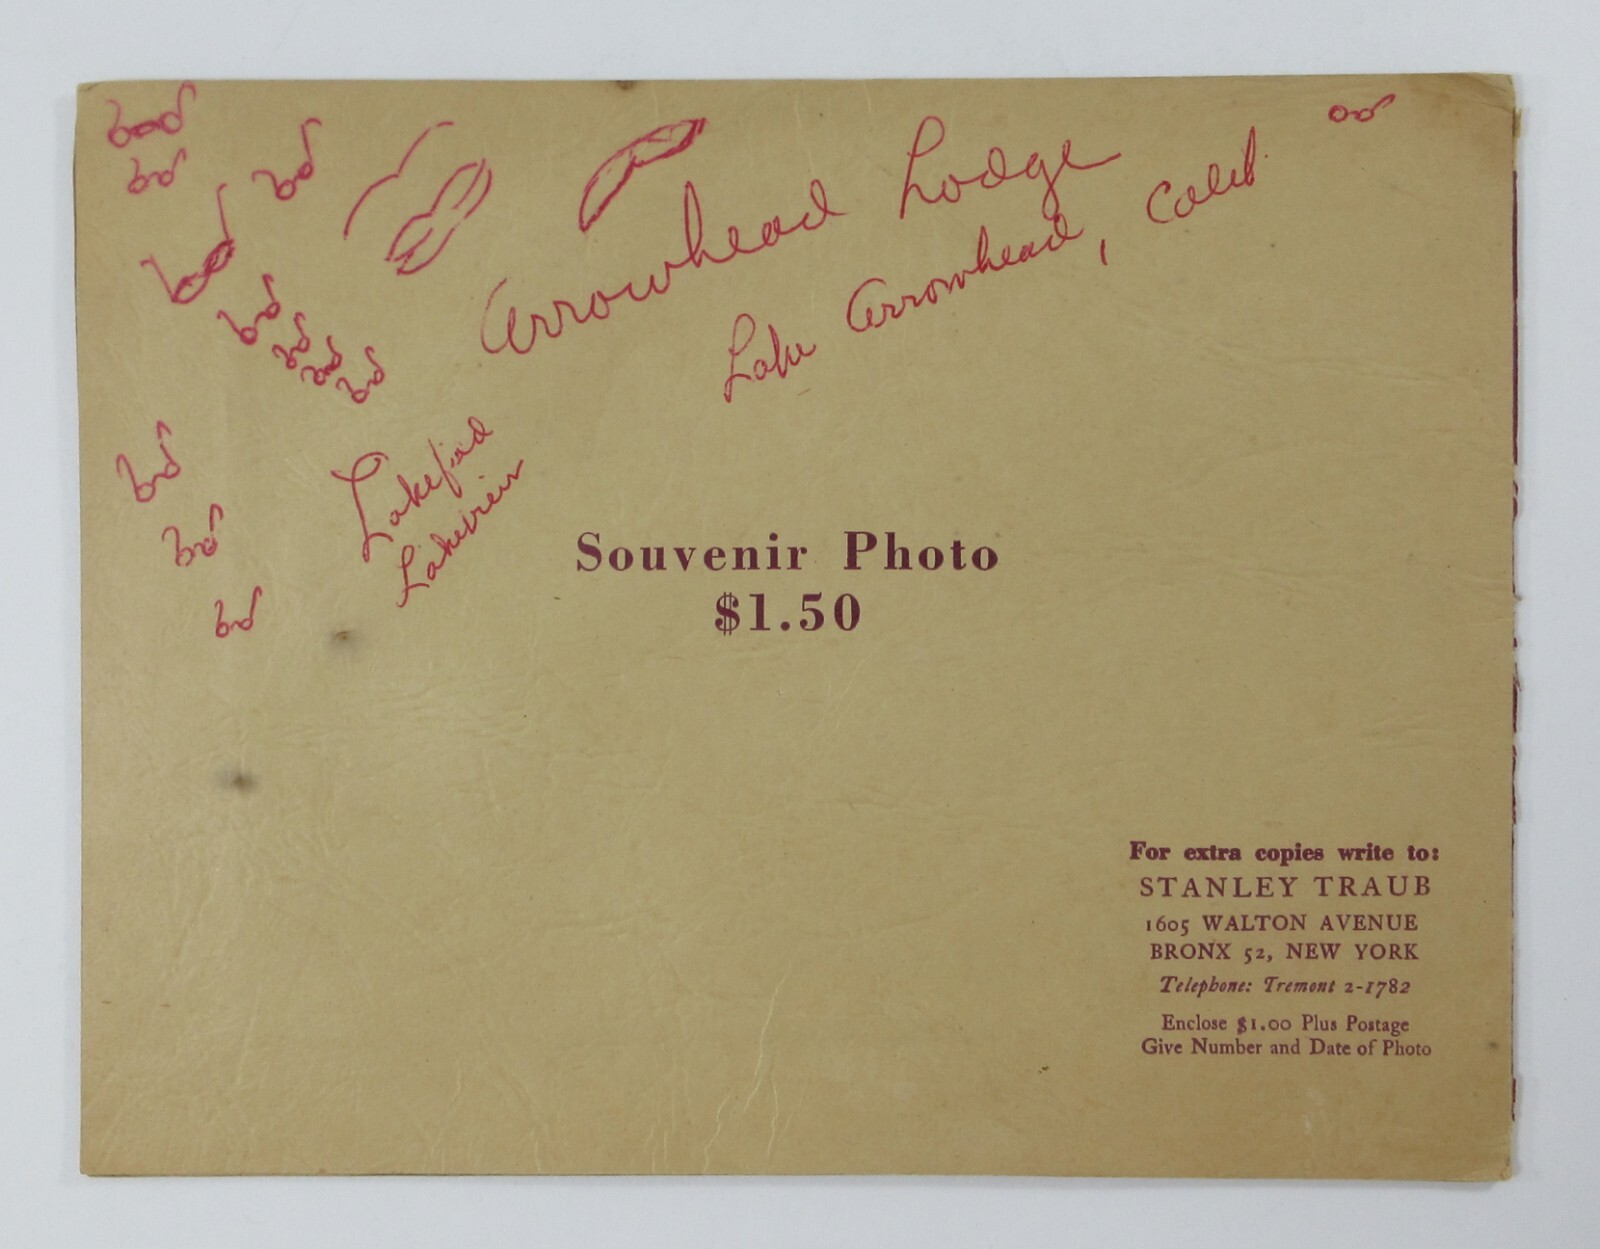 Arrowhead Lodge
Lake Arrowhead, Calif.
Lakeview
Souvenir Photo
$1.50
For extra copies write to:
STANLEY TRAUB
1605 WALTON AVENUE
BRONX 52, NEW YORK
Telephone: Tremont 2-1782
Enclose $1.00 Plus Postage
Give Number and Date of Photo